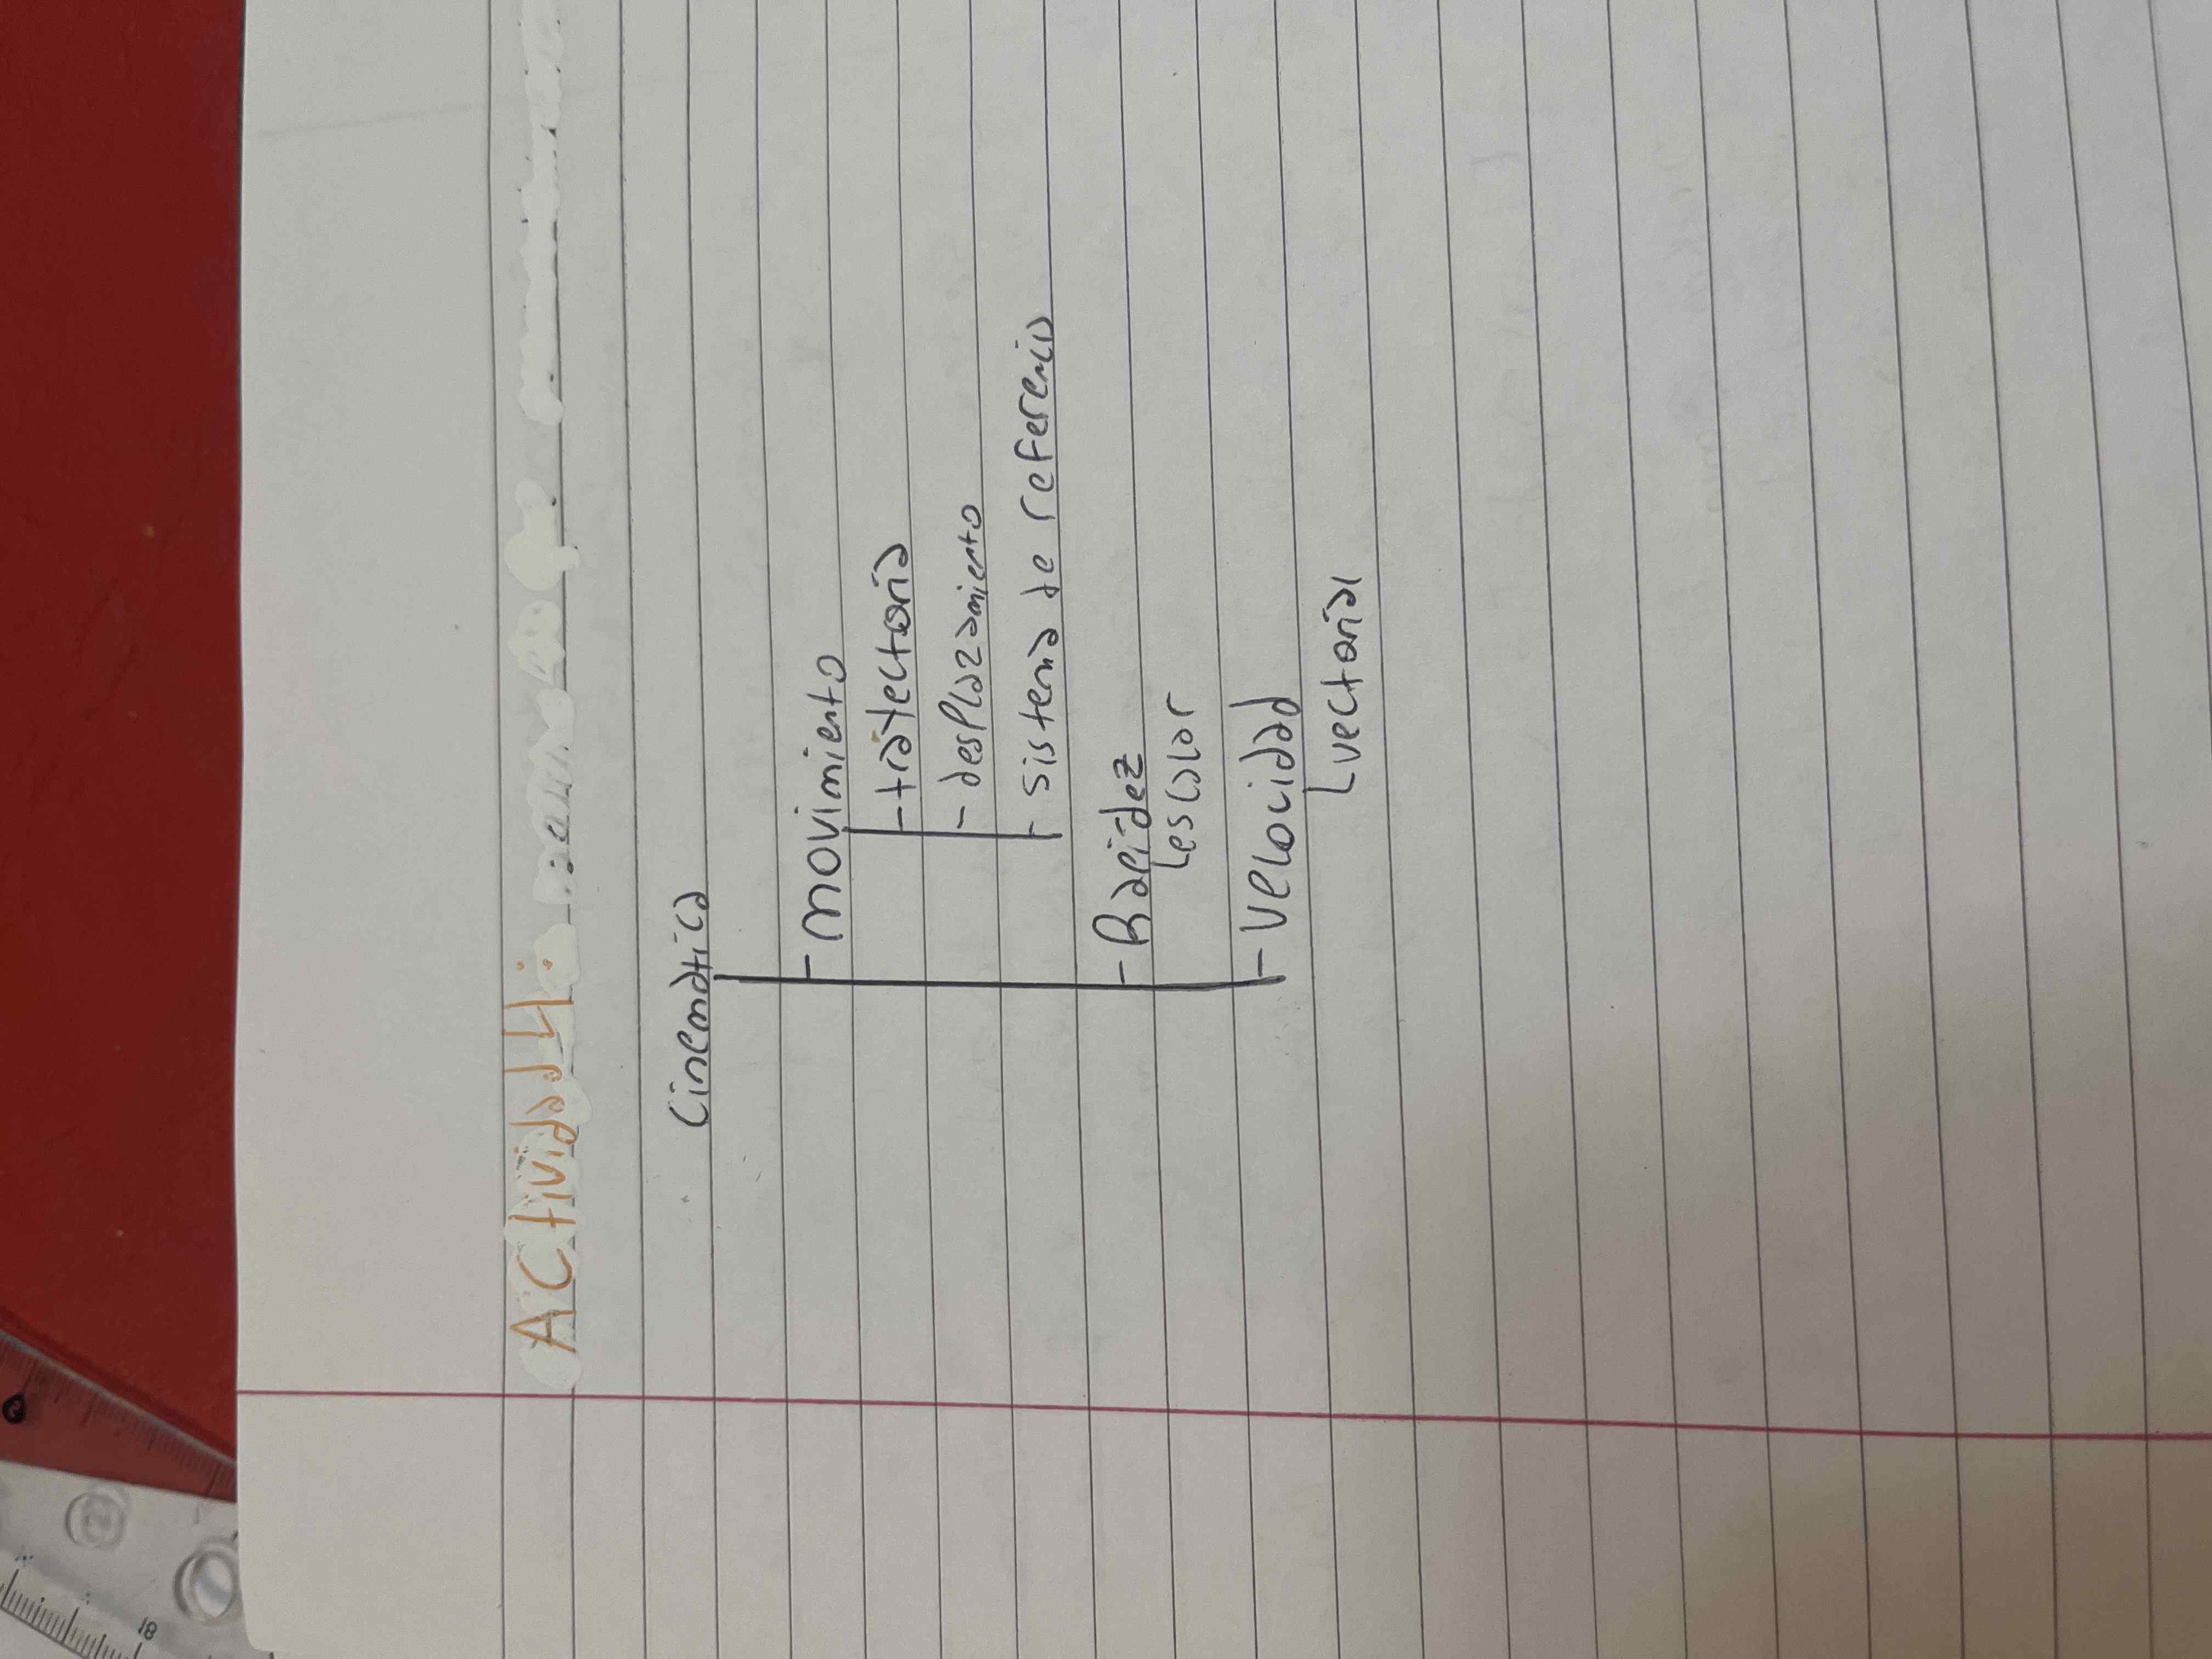 Actividad 4:
Cinematica
- movimiento
- trayectoria
- desplazamiento
- sistema de referencia
- Rapidez
escalar
- Velocidad
vectorial
18